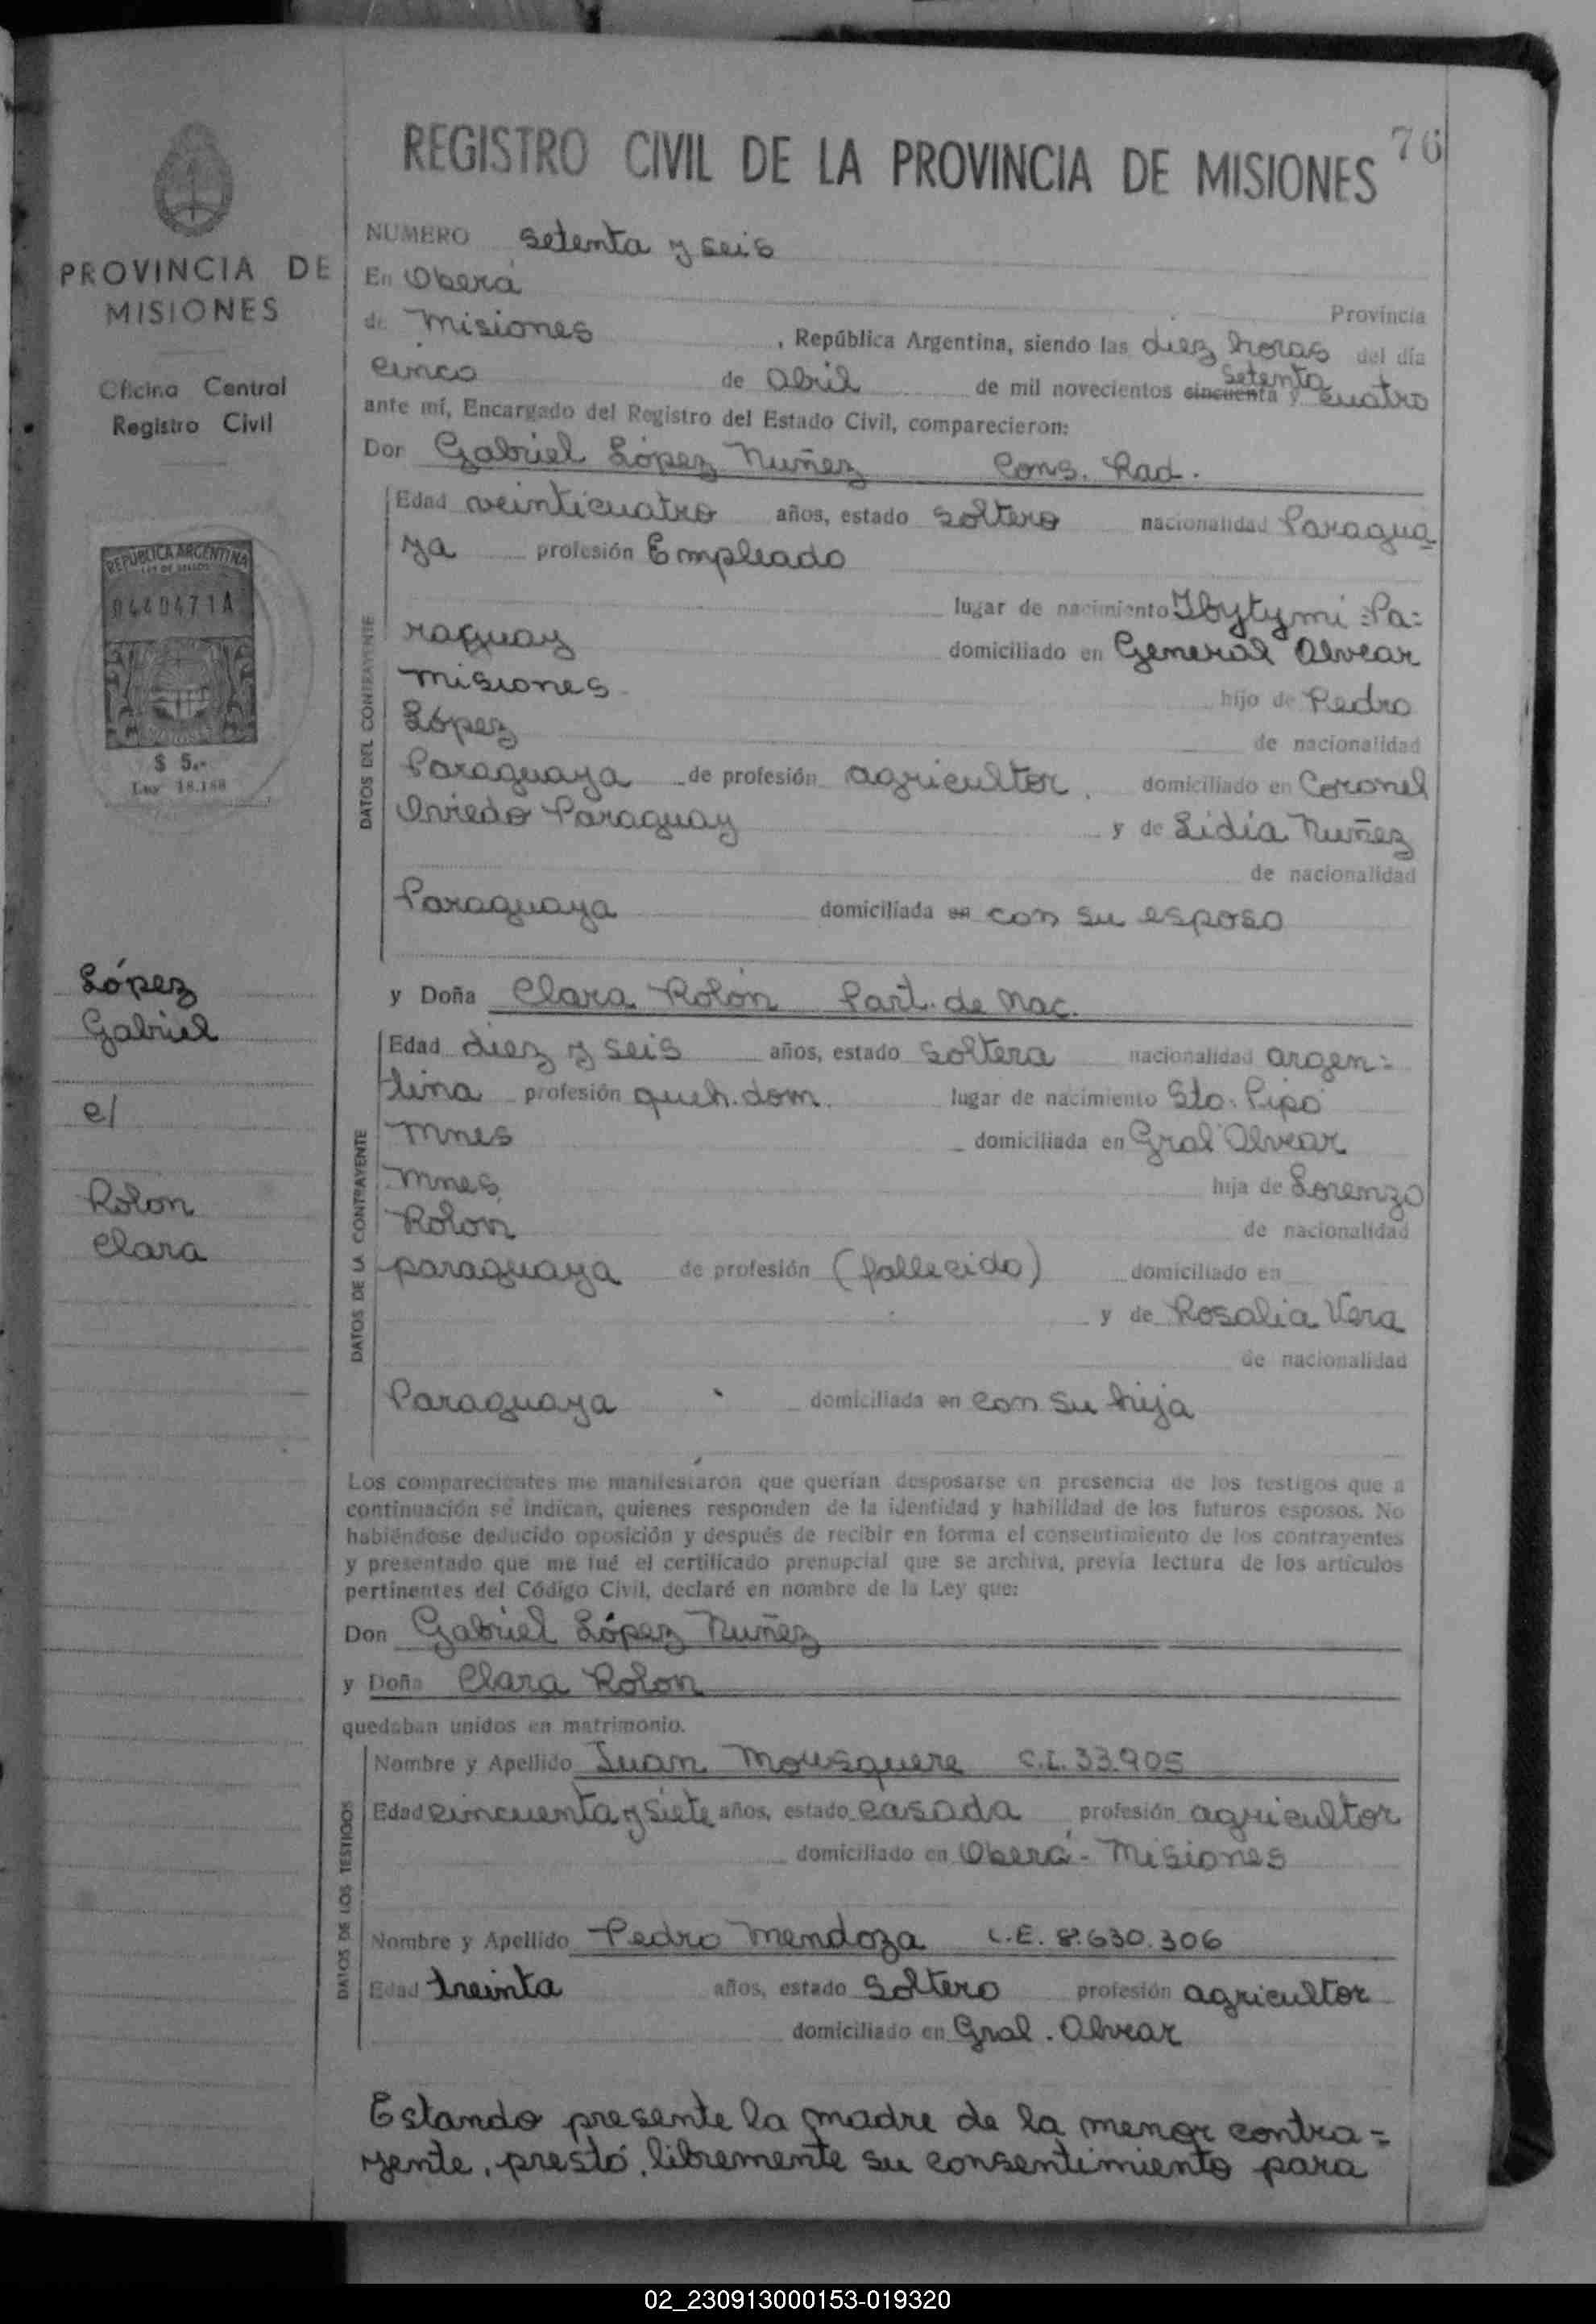 REGISTRO CIVIL DE LA PROVINCIA DE MISIONES 76
PROVINCIA DE
MISIONES
Oficina Central
Registro Civil
REPUBLICA ARGENTINA
LEY DE SELLOS
0440471A
$ 5.-
Ley 18.188
López
Gabriel
c/
Rolon
Clara
NUMERO setenta y seis
En Oberá
Provincia
de Misiones, República Argentina, siendo las diez horas del día
setenta
cinco de Abril de mil novecientos cincuenta y cuatro
ante mí, Encargado del Registro del Estado Civil, comparecieron:
Don Gabriel López Nuñez Cons. Rad.
DATOS DEL CONTRAYENTE
Edad veinticuatro años, estado Soltero nacionalidad Paragua
ya profesión Empleado
lugar de nacimiento Ybytymi =Pa=
raguay domiciliado en General Alvear
Misiones hijo de Pedro
López de nacionalidad
Paraguaya de profesión agricultor. domiciliado en Coronel
Oviedo Paraguay y de Lidia Nuñez
de nacionalidad
Paraguaya domiciliada en con su esposo
y Doña Clara Rolón Part. de Nac.
DATOS DE LA CONTRAYENTE
Edad diez y seis años, estado Soltera nacionalidad argen=
tina profesión queh. dom. lugar de nacimiento Sto. Pipó
Mnes domiciliada en Gral Alvear
Mnes hija de Lorenzo
Rolon de nacionalidad
paraguaya de profesión (fallecido) domiciliado en
y de Rosalia Vera
de nacionalidad
Paraguaya domiciliada en con su hija
Los comparecientes me manifestaron que querían desposarse en presencia de los testigos que a
continuación se indican, quienes responden de la identidad y habilidad de los futuros esposos. No
habiéndose deducido oposición y después de recibir en forma el consentimiento de los contrayentes
y presentado que me fué el certificado prenupcial que se archiva, previa lectura de los artículos
pertinentes del Código Civil, declaré en nombre de la Ley que:
Don Gabriel López Nuñez
y Doña Clara Rolon
quedaban unidos en matrimonio.
DATOS DE LOS TESTIGOS
Nombre y Apellido Juan Mousquere C.I. 33.905
Edad cincuenta y siete años, estado casada profesión agricultor
domiciliado en Oberá - Misiones
Nombre y Apellido Pedro Mendoza L.E. 8.630.306
Edad treinta años, estado Soltero profesión agricultor
domiciliado en Gral. Alvear
Estando presente la madre de la menor contra=
yente, prestó libremente su consentimiento para
02_230913000153-019320